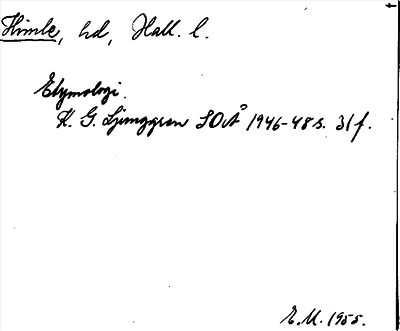 Himle, hd, Hall. l.
Etymologi.
K. G. Ljunggren SOÅ 1946-48 s. 31 f.
E.M. 1955.